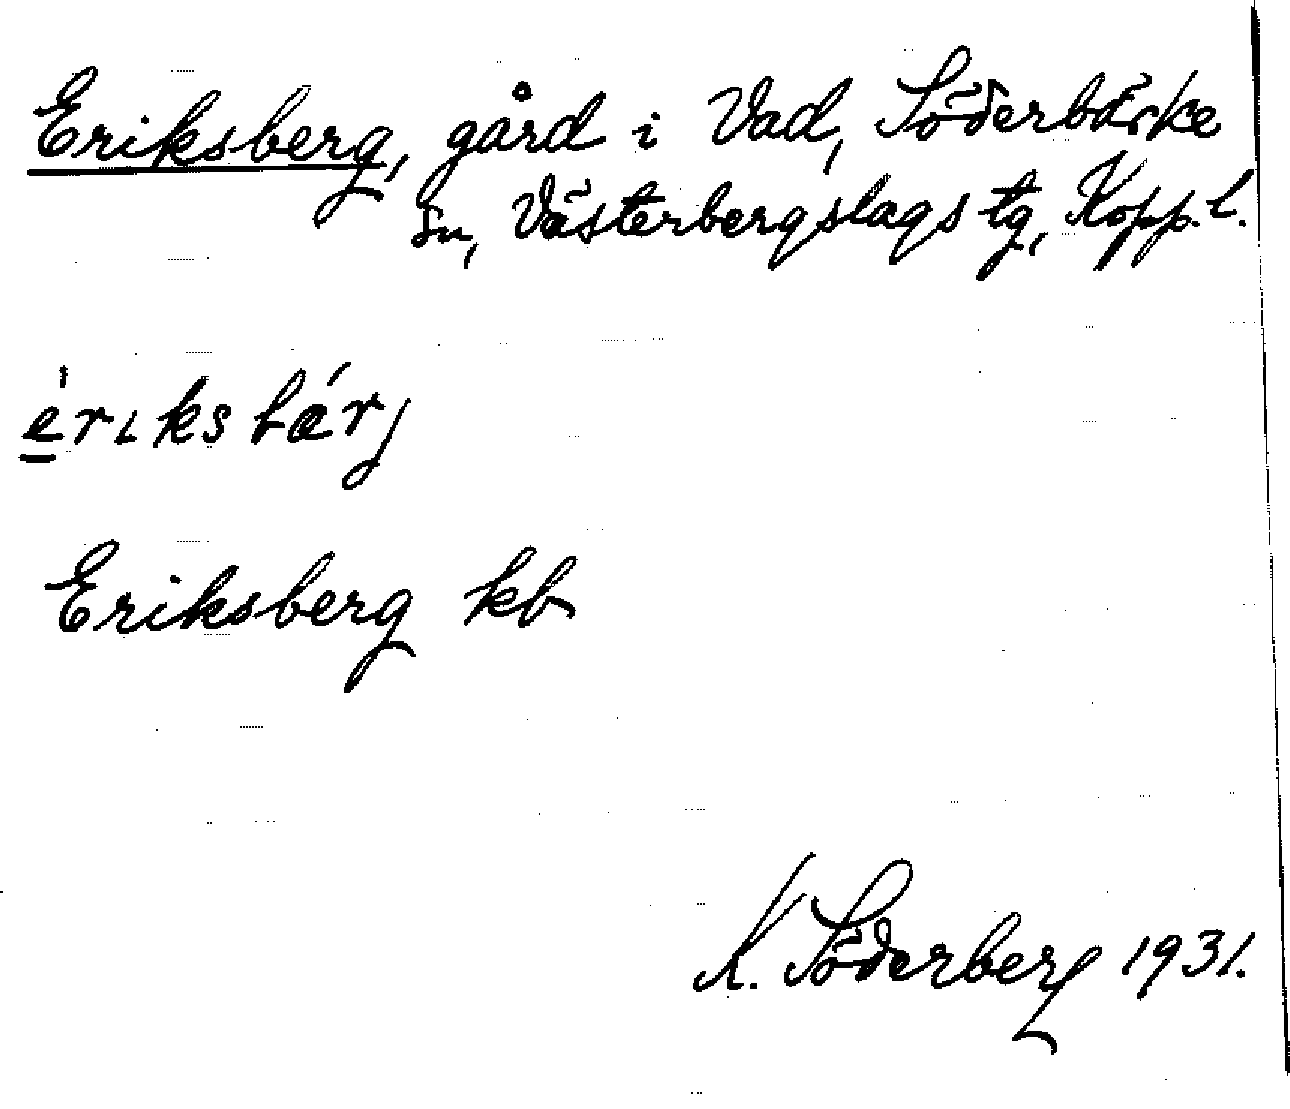 Eriksberg, gård i Vad, Söderbärke
sn, Västerbergslags tg, Kopp. l.
ériksbǽrj
Eriksberg kb
K. Söderberg 1931.